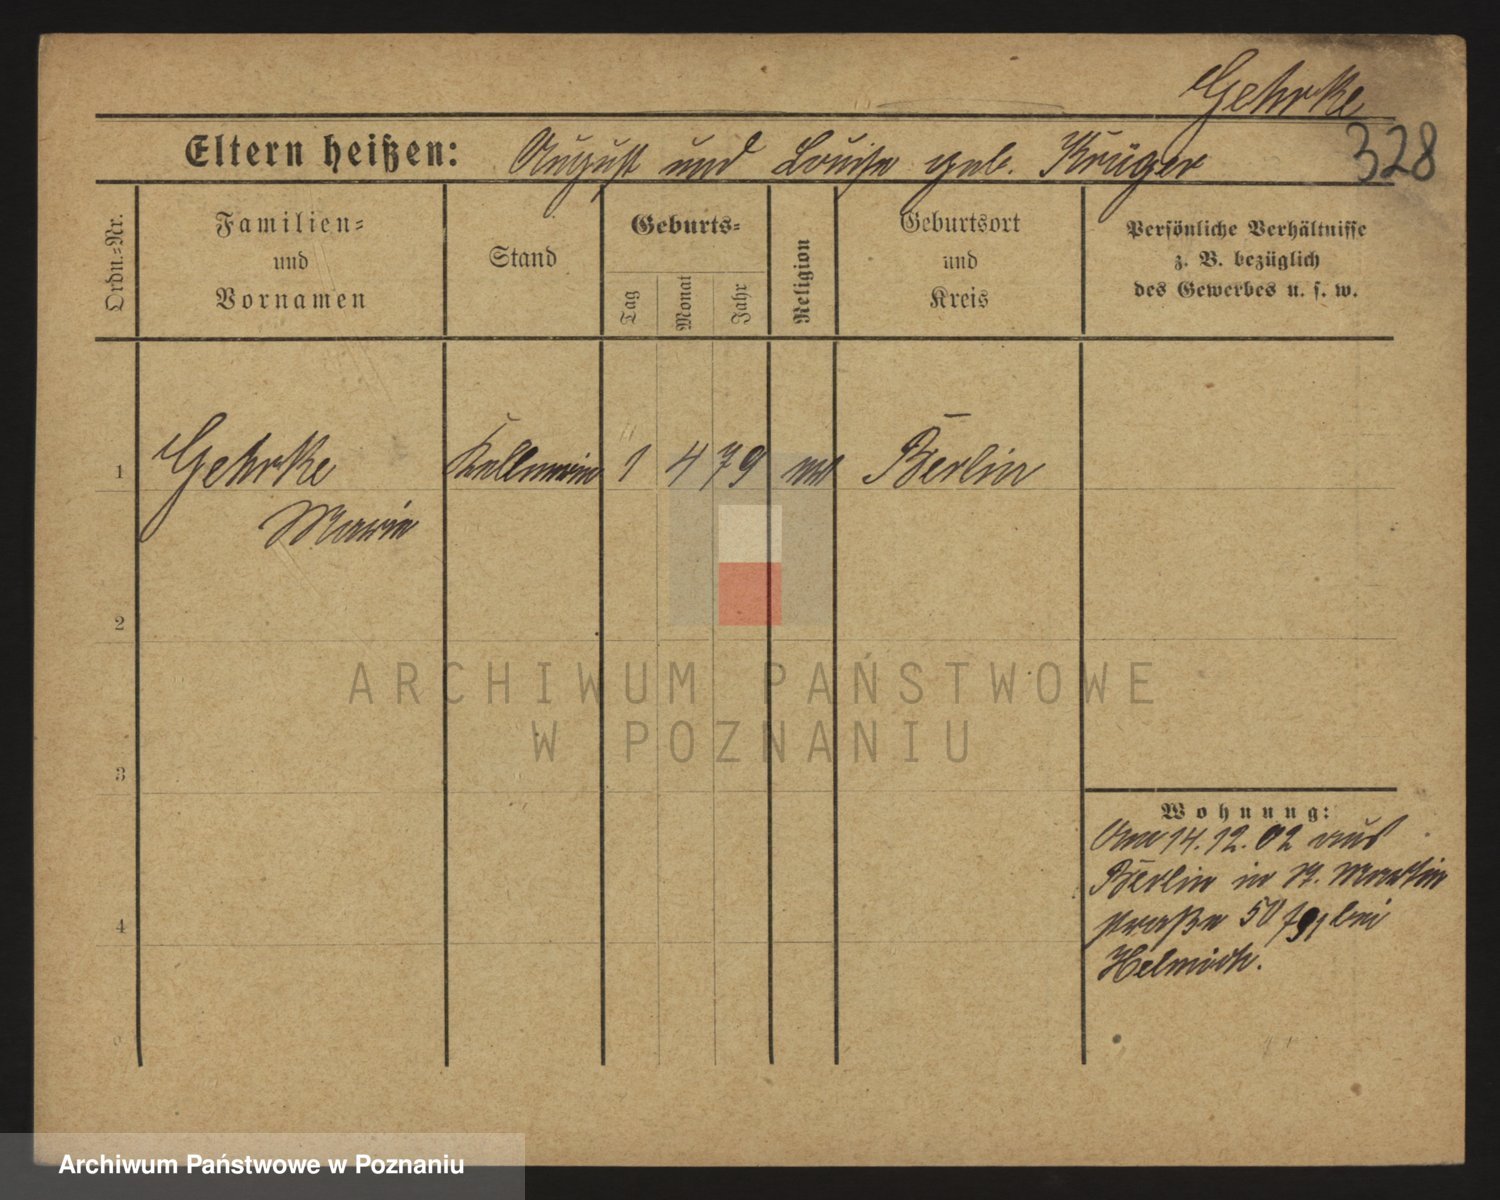 Gehrke
328
Eltern heißen: August und Louise geb. Krüger
Ordn.=Nr.
Familien= und Vornamen
Stand
Geburts=
Tag
Monat
Jahr
Religion
Geburtsort und Kreis
Persönliche Verhältnisse
z. B. bezüglich
des Gewerbes u. s. w.
1 Gehrke Kellnerin 1 4 79 ev Berlin
Marie
2
3
4
Wohnung:
Am 14.12.02 aus
Berlin in St. Martin
straße 50 bei
ARCHIWUM PAŃSTWOWE
W POZNANIU
Archiwum Państwowe w Poznaniu